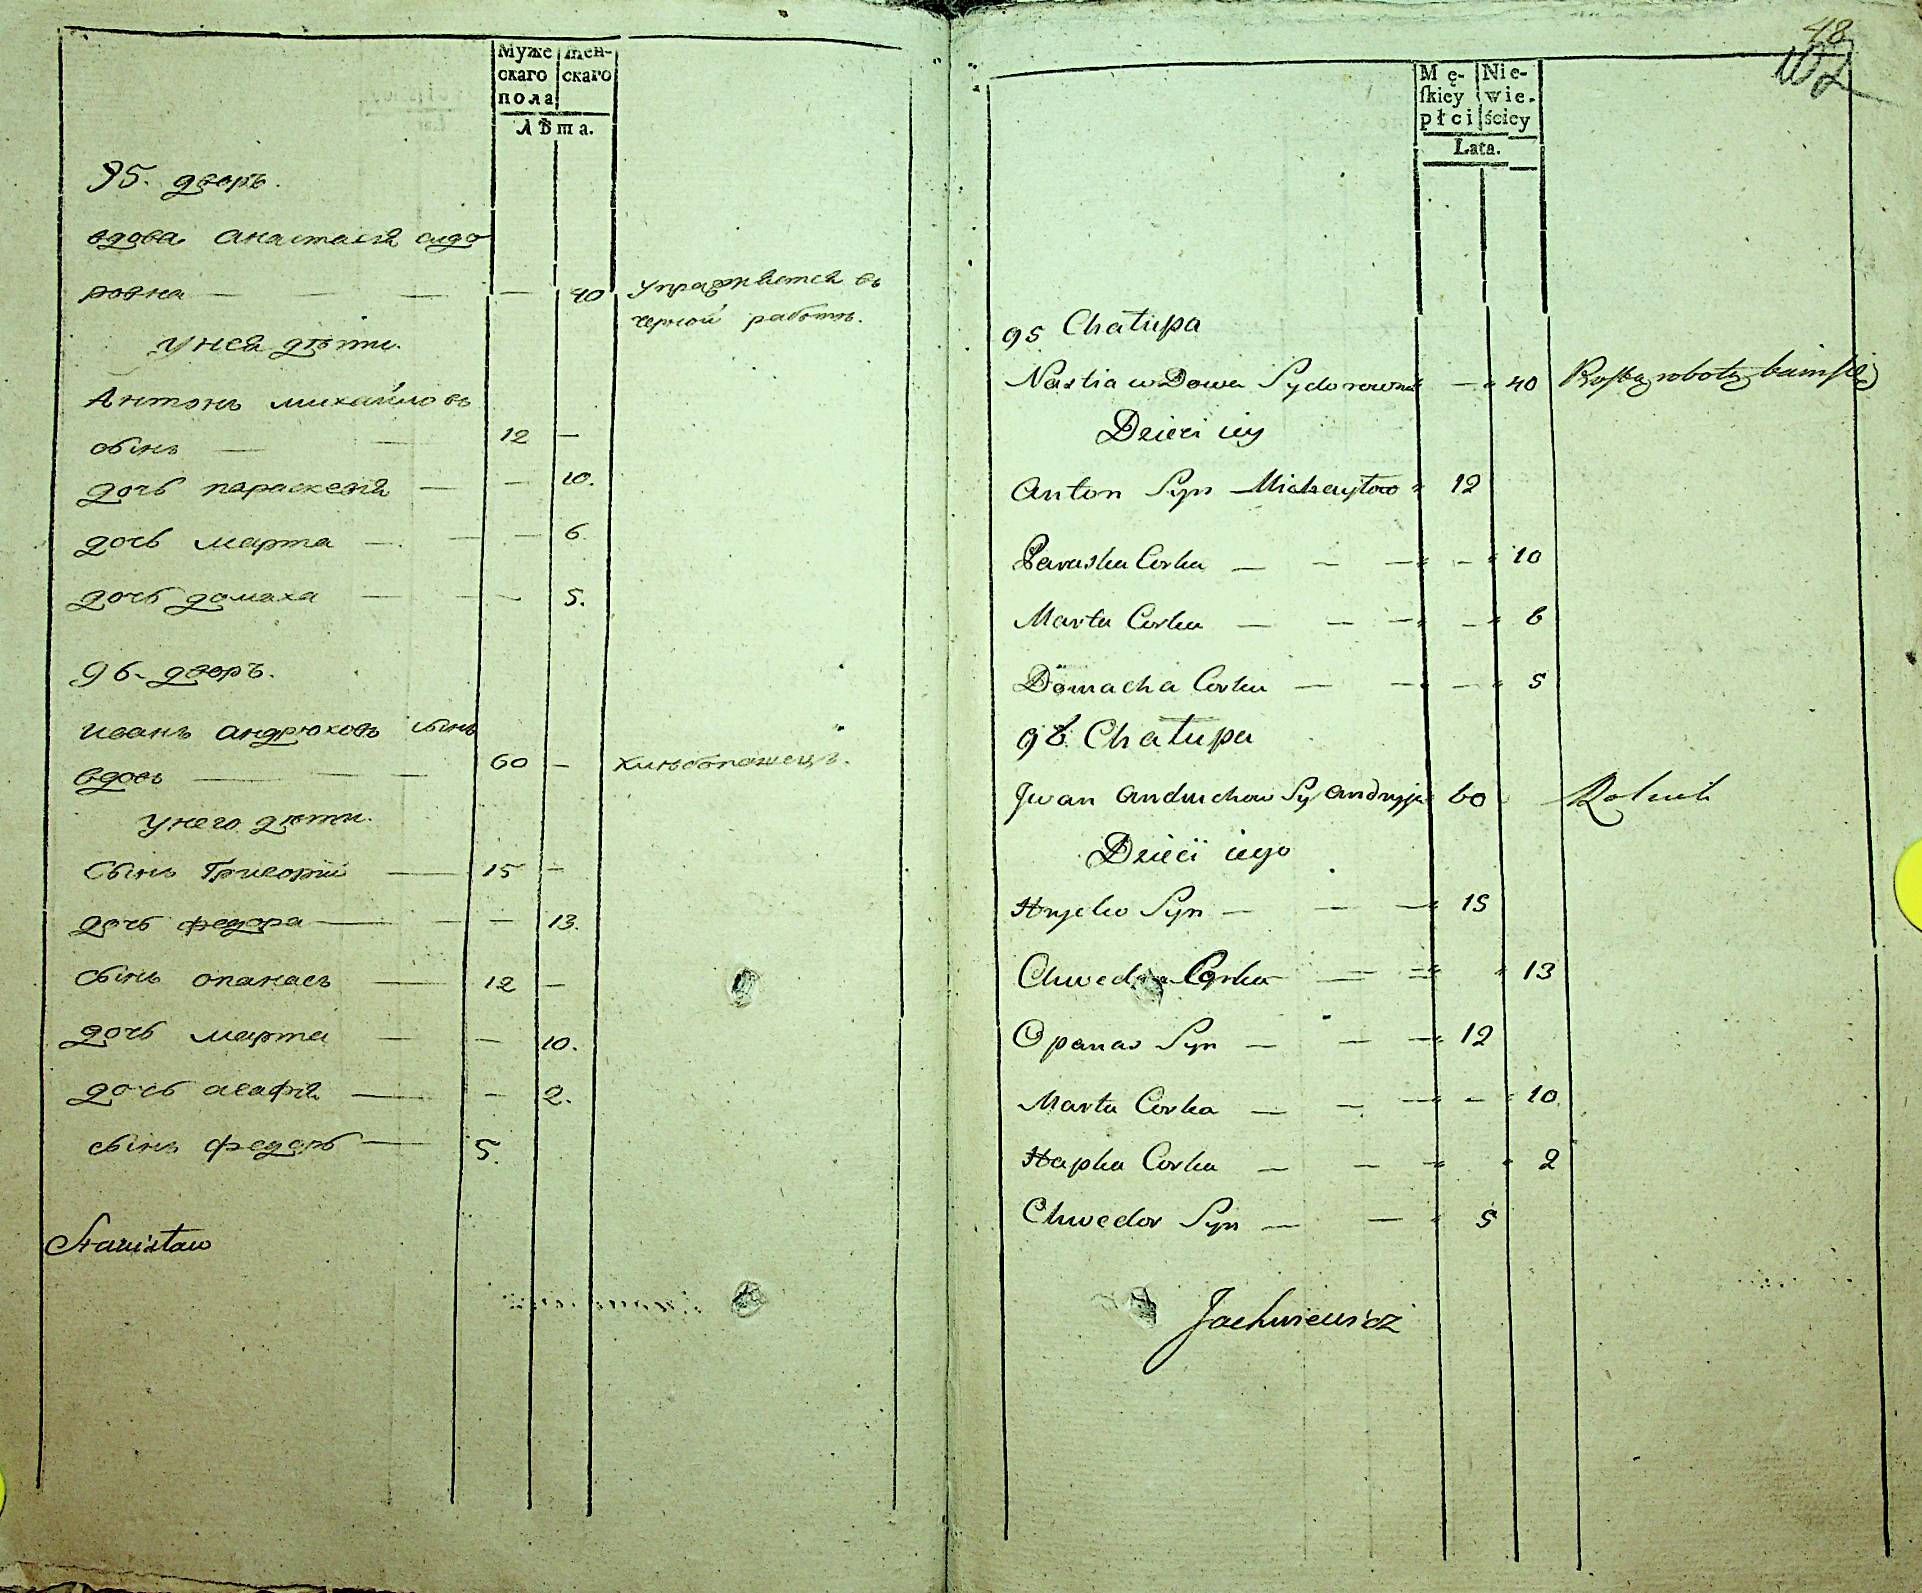 Муже
скаго
пола
жен-
скаго
лѣта.
95. дворъ.
вдова Анастасія сидо
ровна — — — — 40 упражняется въ
черной работѣ.
у нея дѣти.
Антонъ михайловъ
сынъ — — 12 —
дочь параскевія — — 10.
дочь марта — — — 6.
дочь домаха — — — 5.
96. дворъ.
иванъ андрюховъ сынъ
вдовъ — — — 60 — хлѣбопашецъ.
у него дѣти.
сынъ Григорій — 15 —
дочь федора — — — 13.
сынъ опанасъ — 12 —
дочь марта — — 10.
дочь агафія — — 2.
сынъ федоръ — 5.
Stanisław
48
102
Mę-
skiey
płci
Nie-
wie-
ściey
Lata.
95 Chałupa
Nastia wDowa Sydorowna — 40
Dzieci iey
Anton Syn Michayłow 12
Paraska Corka — — — — 10
Marta Corka — — — — 6
Domacha Corka — — — 5
96. Chałupa
Jwan Andruchow Sy 60 Rolnik
Dzieci iego
Hryćko Syn — — — 15
Chwedora Corka — — 13
Opanas Syn — — — 12
Marta Corka — — — — 10
Hapka Corka — — — 2
Chwedor Syn — — 5
Jachniewicz